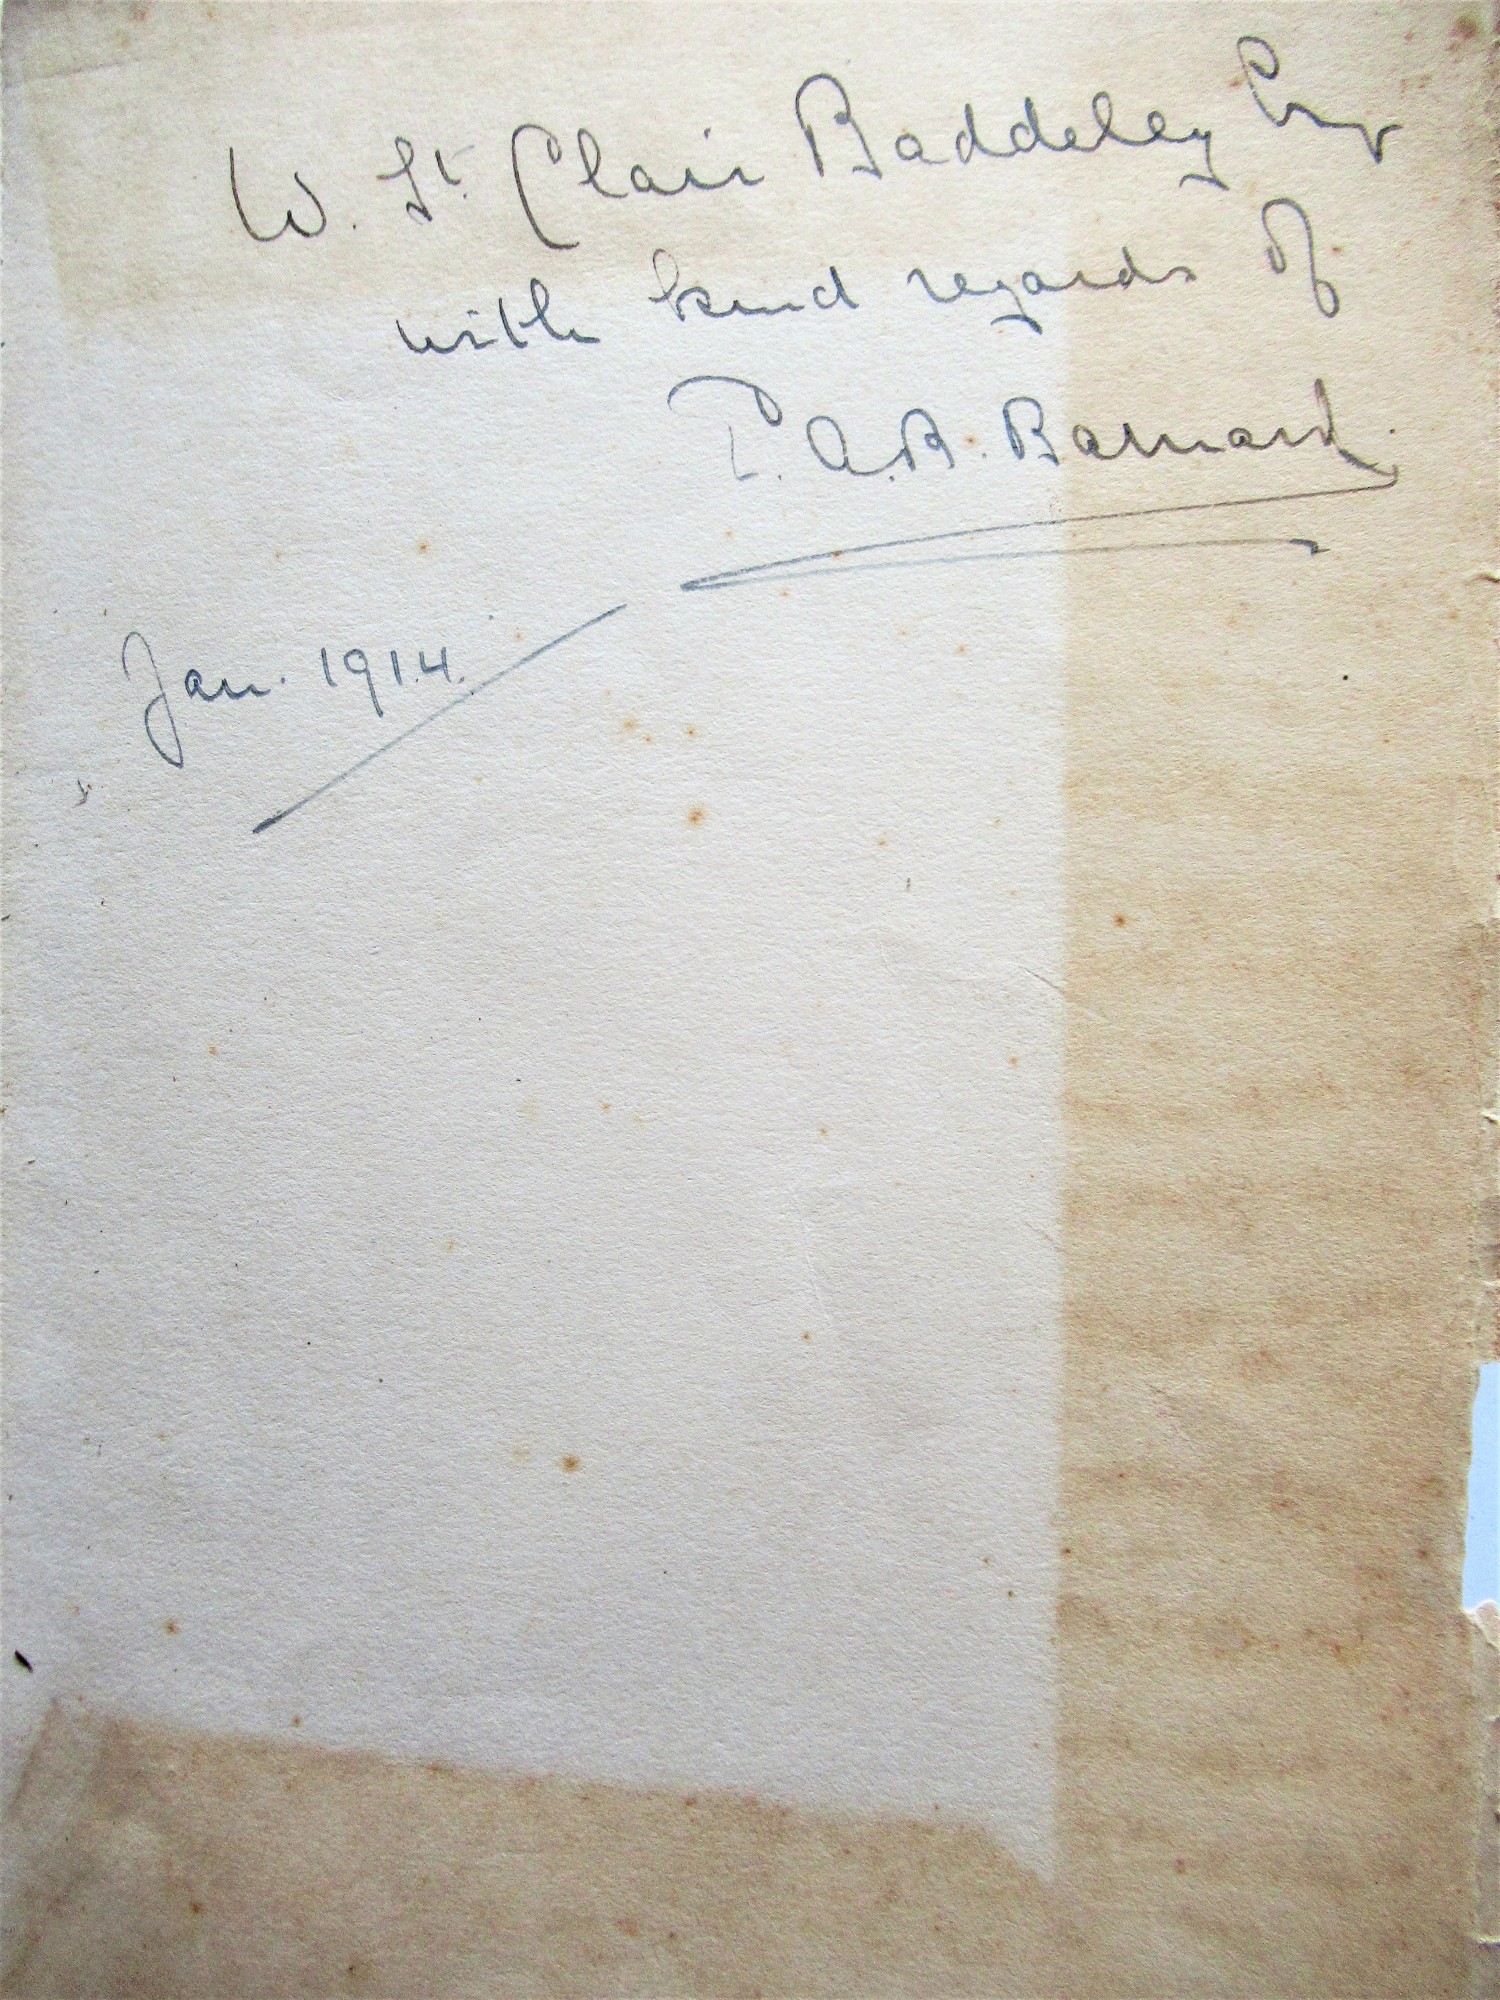 W. St. Clair Baddeley Esqr
with kind regards of
E.A.B. Barnard.
Jan. 1914.